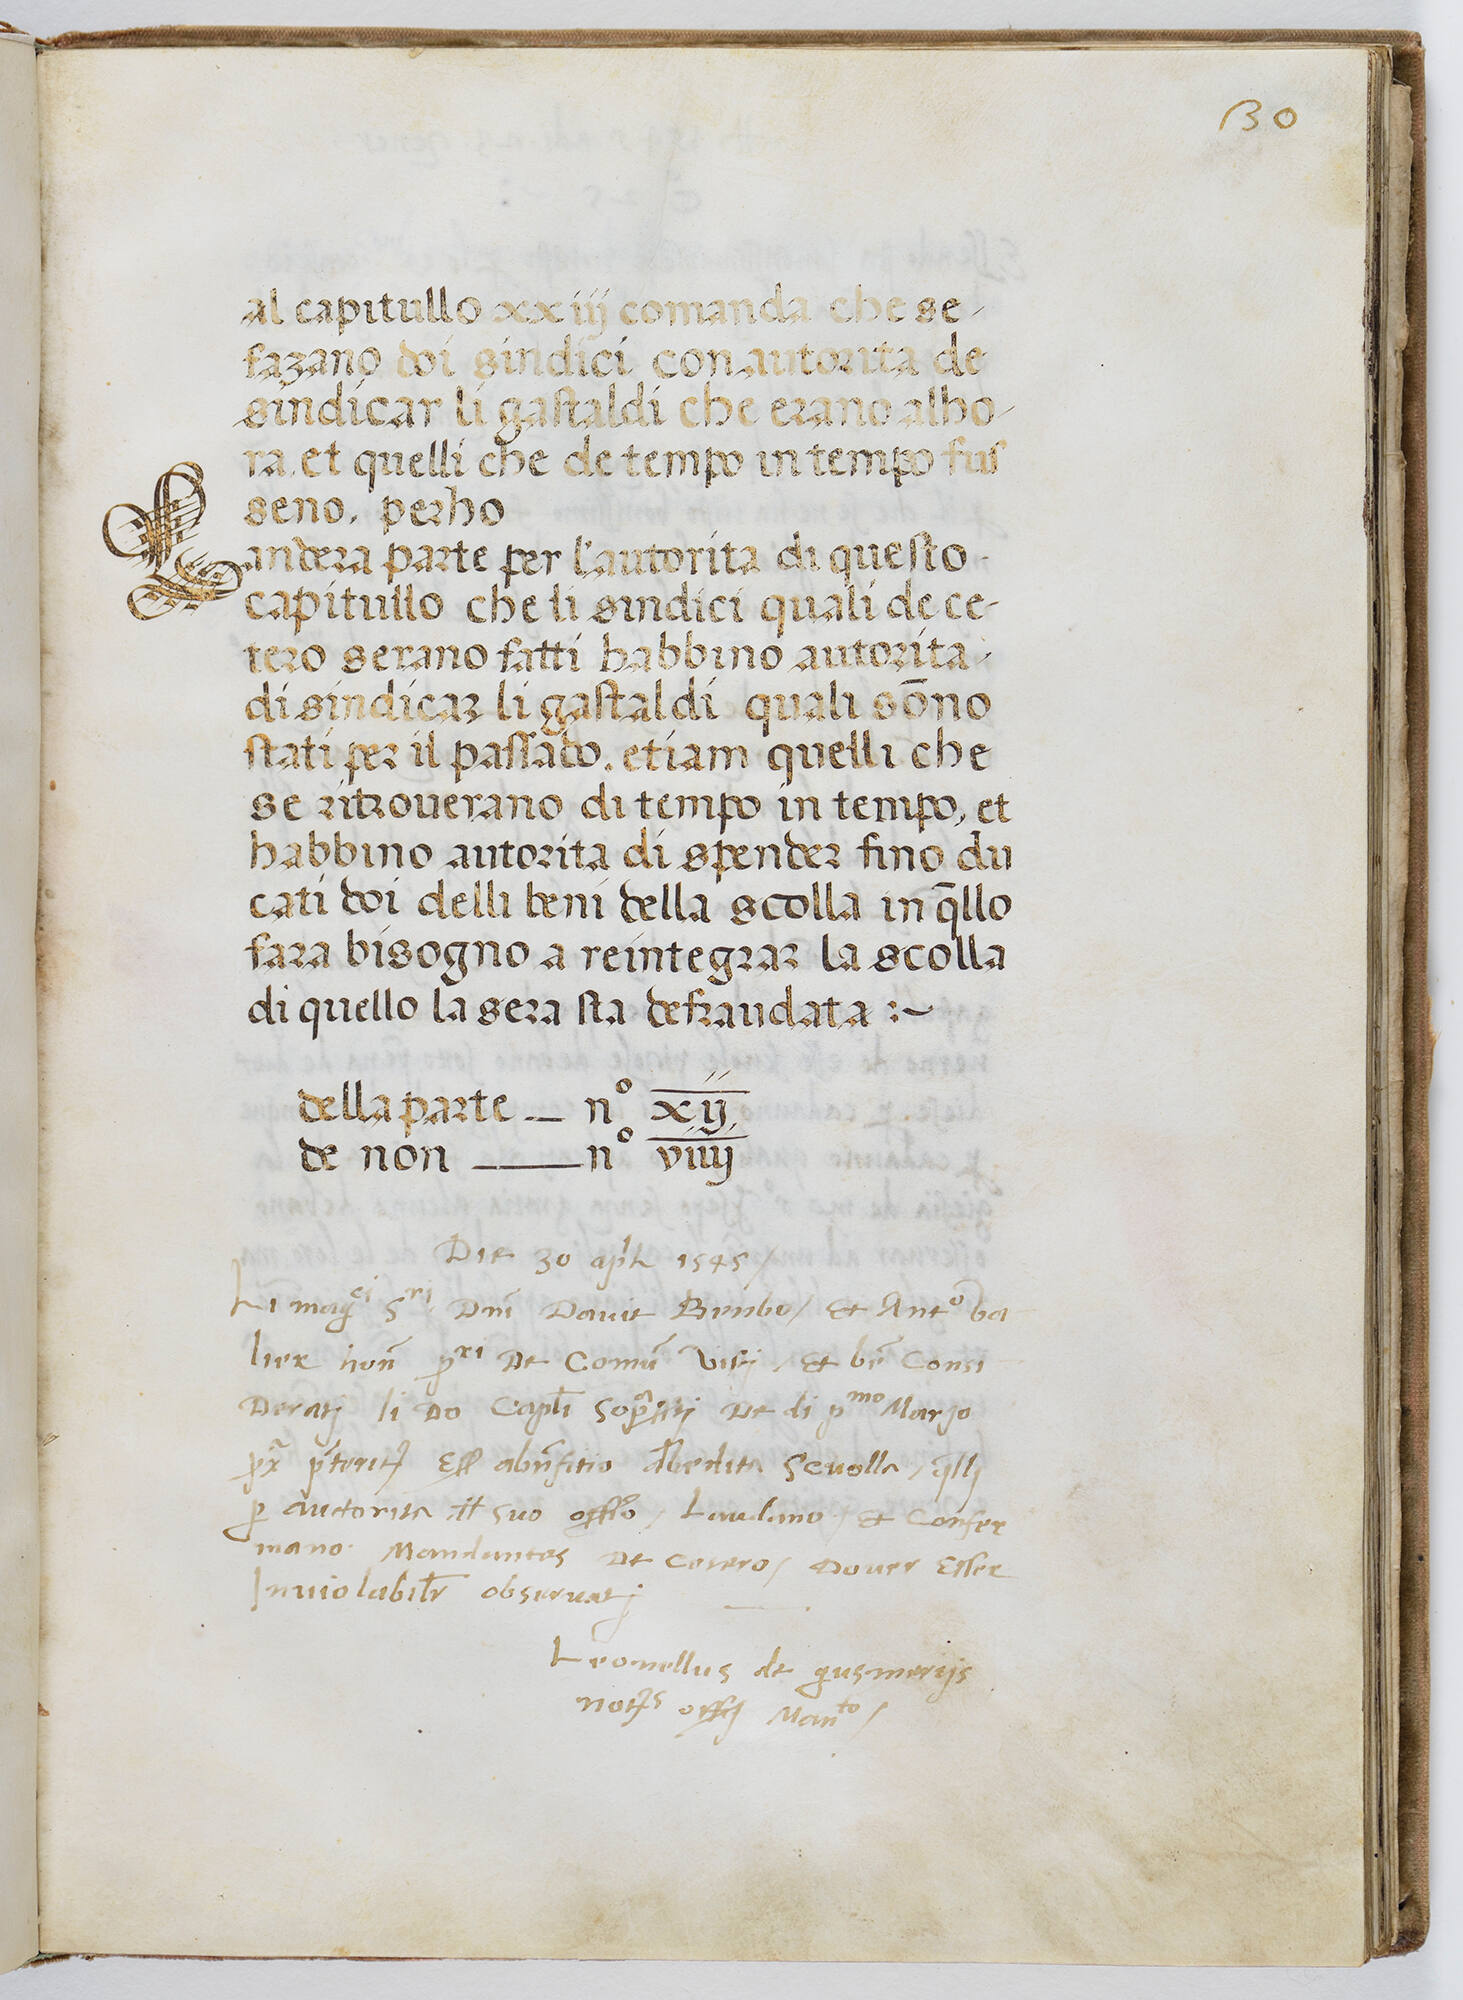 130
al capitullo xxiij comanda che se-
fazano doi sindici con autorita de
sindicar li gastaldi che erano alho-
ra, et quelli che de tempo in tempo fus
seno, perho
Landera parte per l'autorita di questo
capitullo che li sindici quali de ce-
tero serano fatti habbino autorita
di sindicar li gastaldi quali sōno
stati per il passado, etiam quelli che
se ritrouerano di tempo in tempo, et
habbino autorita di spender fino du
cati doi delli beni della scolla in q̄llo
fara bisogno a reintegrar la scolla
di quello la sera sta defraudata :~
della parte — nº xij
de non — nº viiij
Die 30 apl 1545 /
Li mag^ci S^ri Dnī Davit Bembo / Et Ant° ba
lier hon̄ p^ri De Comū Visti / Et bn̄ Consi
Deratj li Do Capli De di p^mo Marzo
Scuolla / q̄llj
p autorita suo offo / Laudano / Et Confer
mano. Mandantes De Cetero / Dover Esser
Inviolabilr observatj
Leonellus de
offj Man^to /